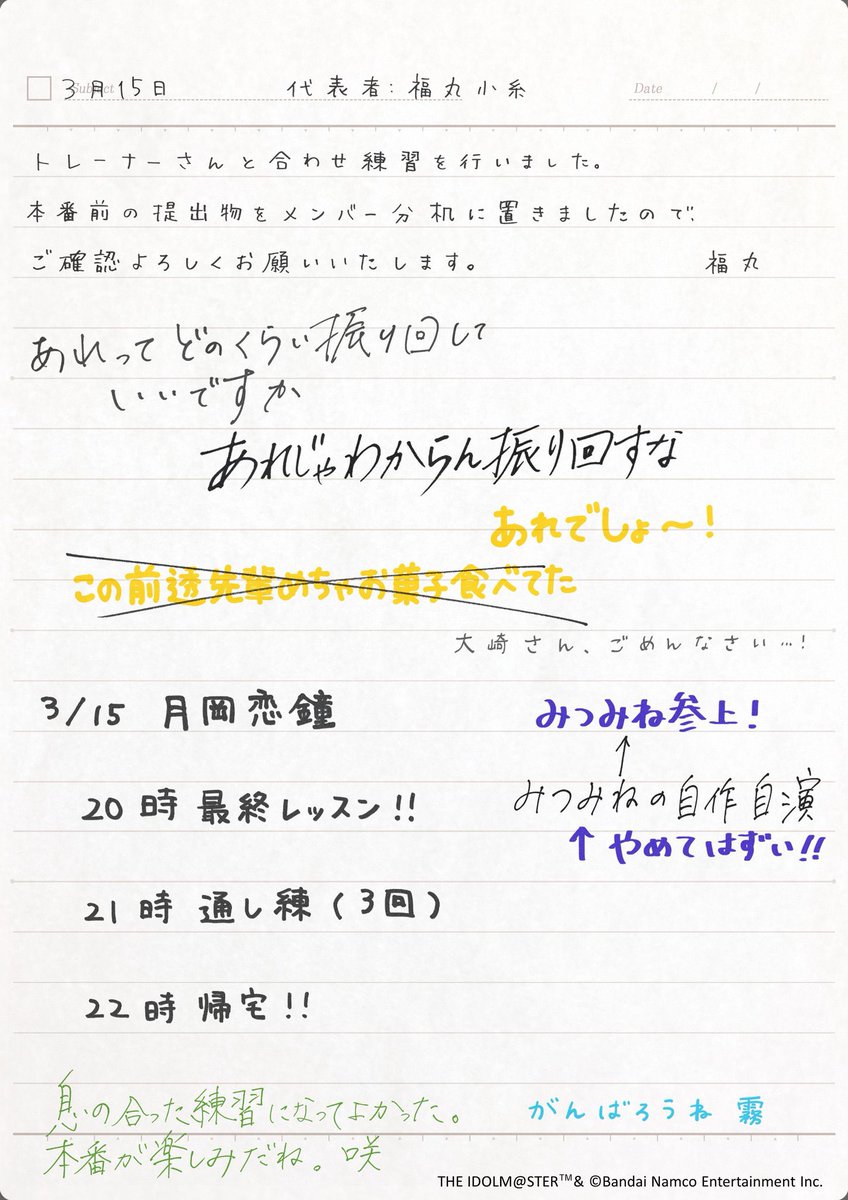 Subject
3月15日 代表者:福丸小糸 Date / /
トレーナーさんと合わせ練習を行いました。
本番前の提出物をメンバー分机に置きましたので、
ご確認よろしくお願いいたします。 福丸
あれってどのくらい振り回して
いいですか
あれじゃわからん振り回すな
あれでしょ〜!
この前透先輩めちゃお菓子食べてた
大崎さん、ごめんなさい…!
3/15 月岡恋鐘
みつみね参上!
↑
みつみねの自作自演
↑やめてはずい!!
20時 最終レッスン!!
21時 通し練(3回)
22時 帰宅!!
息の合った練習になってよかった。
本番が楽しみだね。咲
がんばろうね 霧
THE IDOLM@STER™& ©Bandai Namco Entertainment Inc.